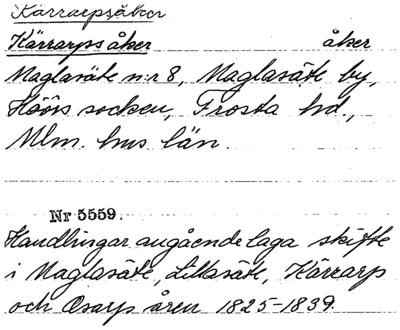 Kärrarpsåker
Kärrarpsåker åker
Maglasäte n:r 8, Maglasäte by,
Höörs socken, Frosta hd.,
Mlm. hus län.
Nr 5559.
Handlingar angående laga skifte
i Maglasäte, Lillasäte, Kärrarp
och Osarp åren 1825-1839.